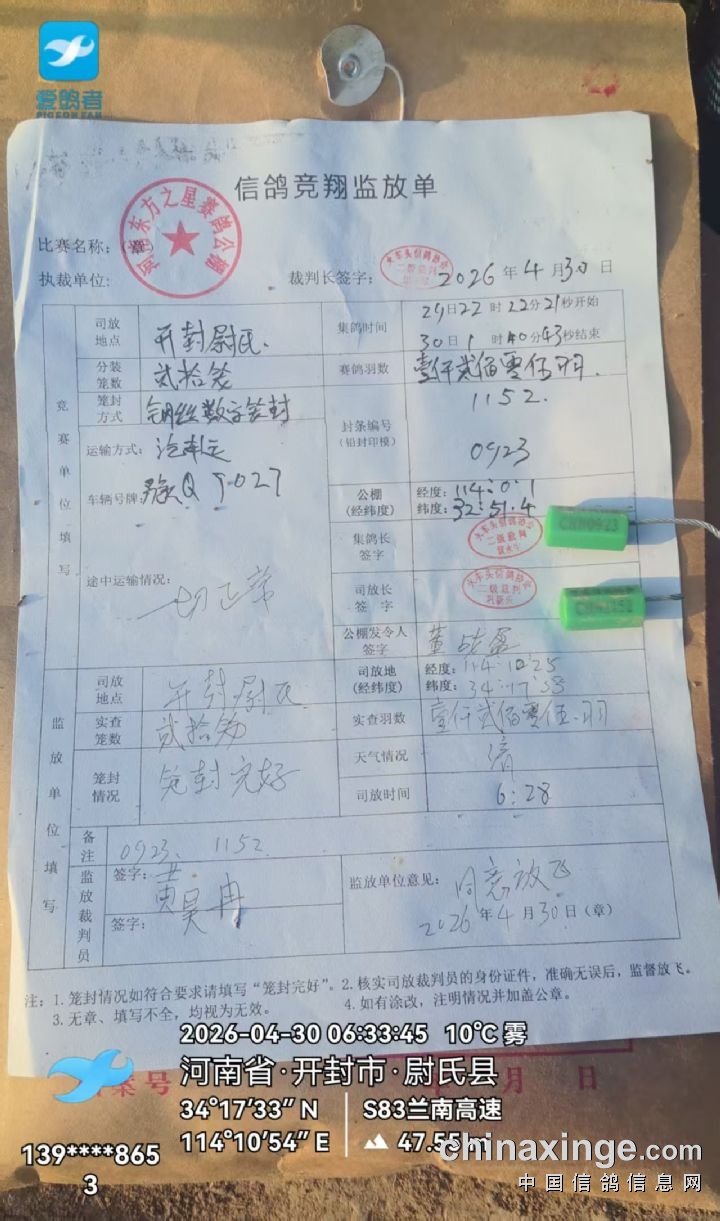 爱鸽者
PIGEON FAN
信鸽竞翔监放单
比赛名称：（章）
东方之星赛鸽公棚
执裁单位: 裁判长签字： 2026年4月30日
司放地点 开封尉氏. 集鸽时间 29日22时22分21秒开始
30日1时40分43秒结束
分装笼数 贰拾笼 赛鸽羽数 壹仟贰佰零伍羽.
笼封方式 钢丝数字笼封 封条编号（铅封印模） 1152.
0923
竞赛单位填写
运输方式: 汽车运
车辆号牌: Q9027 公棚（经纬度） 经度: 114:0:1
纬度: 32:51.4
集鸽长签字
CHN0923
途中运输情况: 一切正常 司放长签字
公棚发令人签字 董
司放地点 开封尉氏 司放地（经纬度） 经度: 114:10:25
纬度: 34:17:38
实查笼数 贰拾笼 实查羽数 壹仟贰佰零伍羽
监放单位填写
笼封情况 笼封完好 天气情况 晴
司放时间 6:28
备注 0923. 1152.
监放裁判员 签字: 黄昊冉 监放单位意见: 同意放飞
签字: 2026年4月30日（章）
注：1.笼封情况如符合要求请填写“笼封完好”。2.核实司放裁判员的身份证件，准确无误后，监督放飞。
3.无章、填写不全，均视为无效。 4.如有涂改，注明情况并加盖公章。
2026-04-30 06:33:45 10℃ 雾
河南省·开封市·尉氏县
34°17′33″N S83兰南高速
114°10′54″E 47.55
案号 月 日
139****8653
chinaxinge.com
中国信鸽信息网